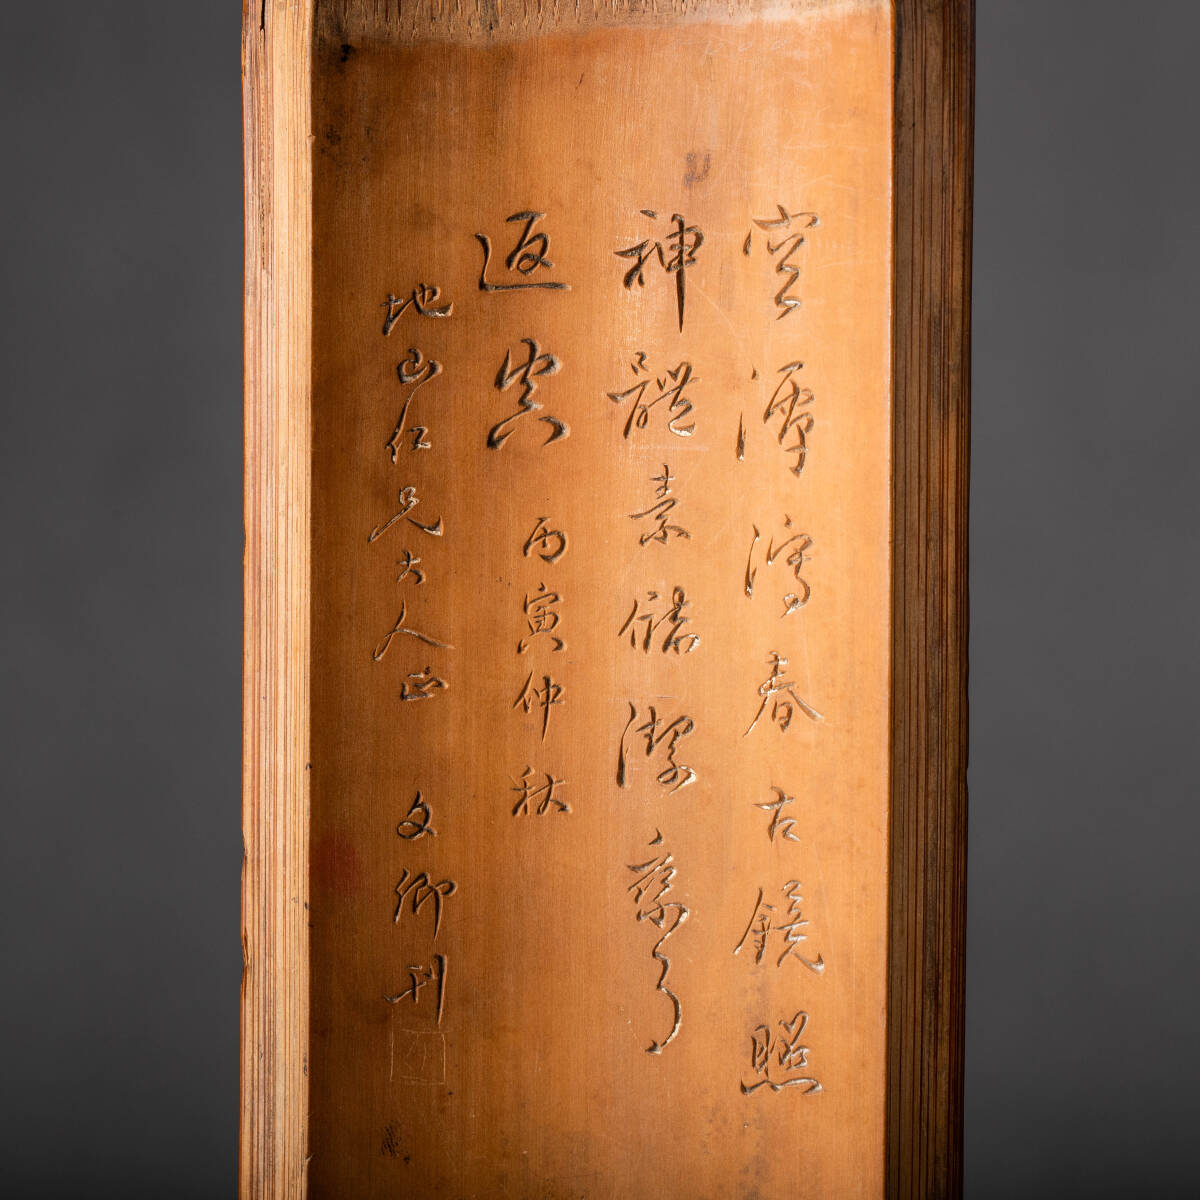 空潭瀉春古鏡照
神體素儲潔乘月
返真 丙寅仲秋
地山仁兄大人正 文卿刊